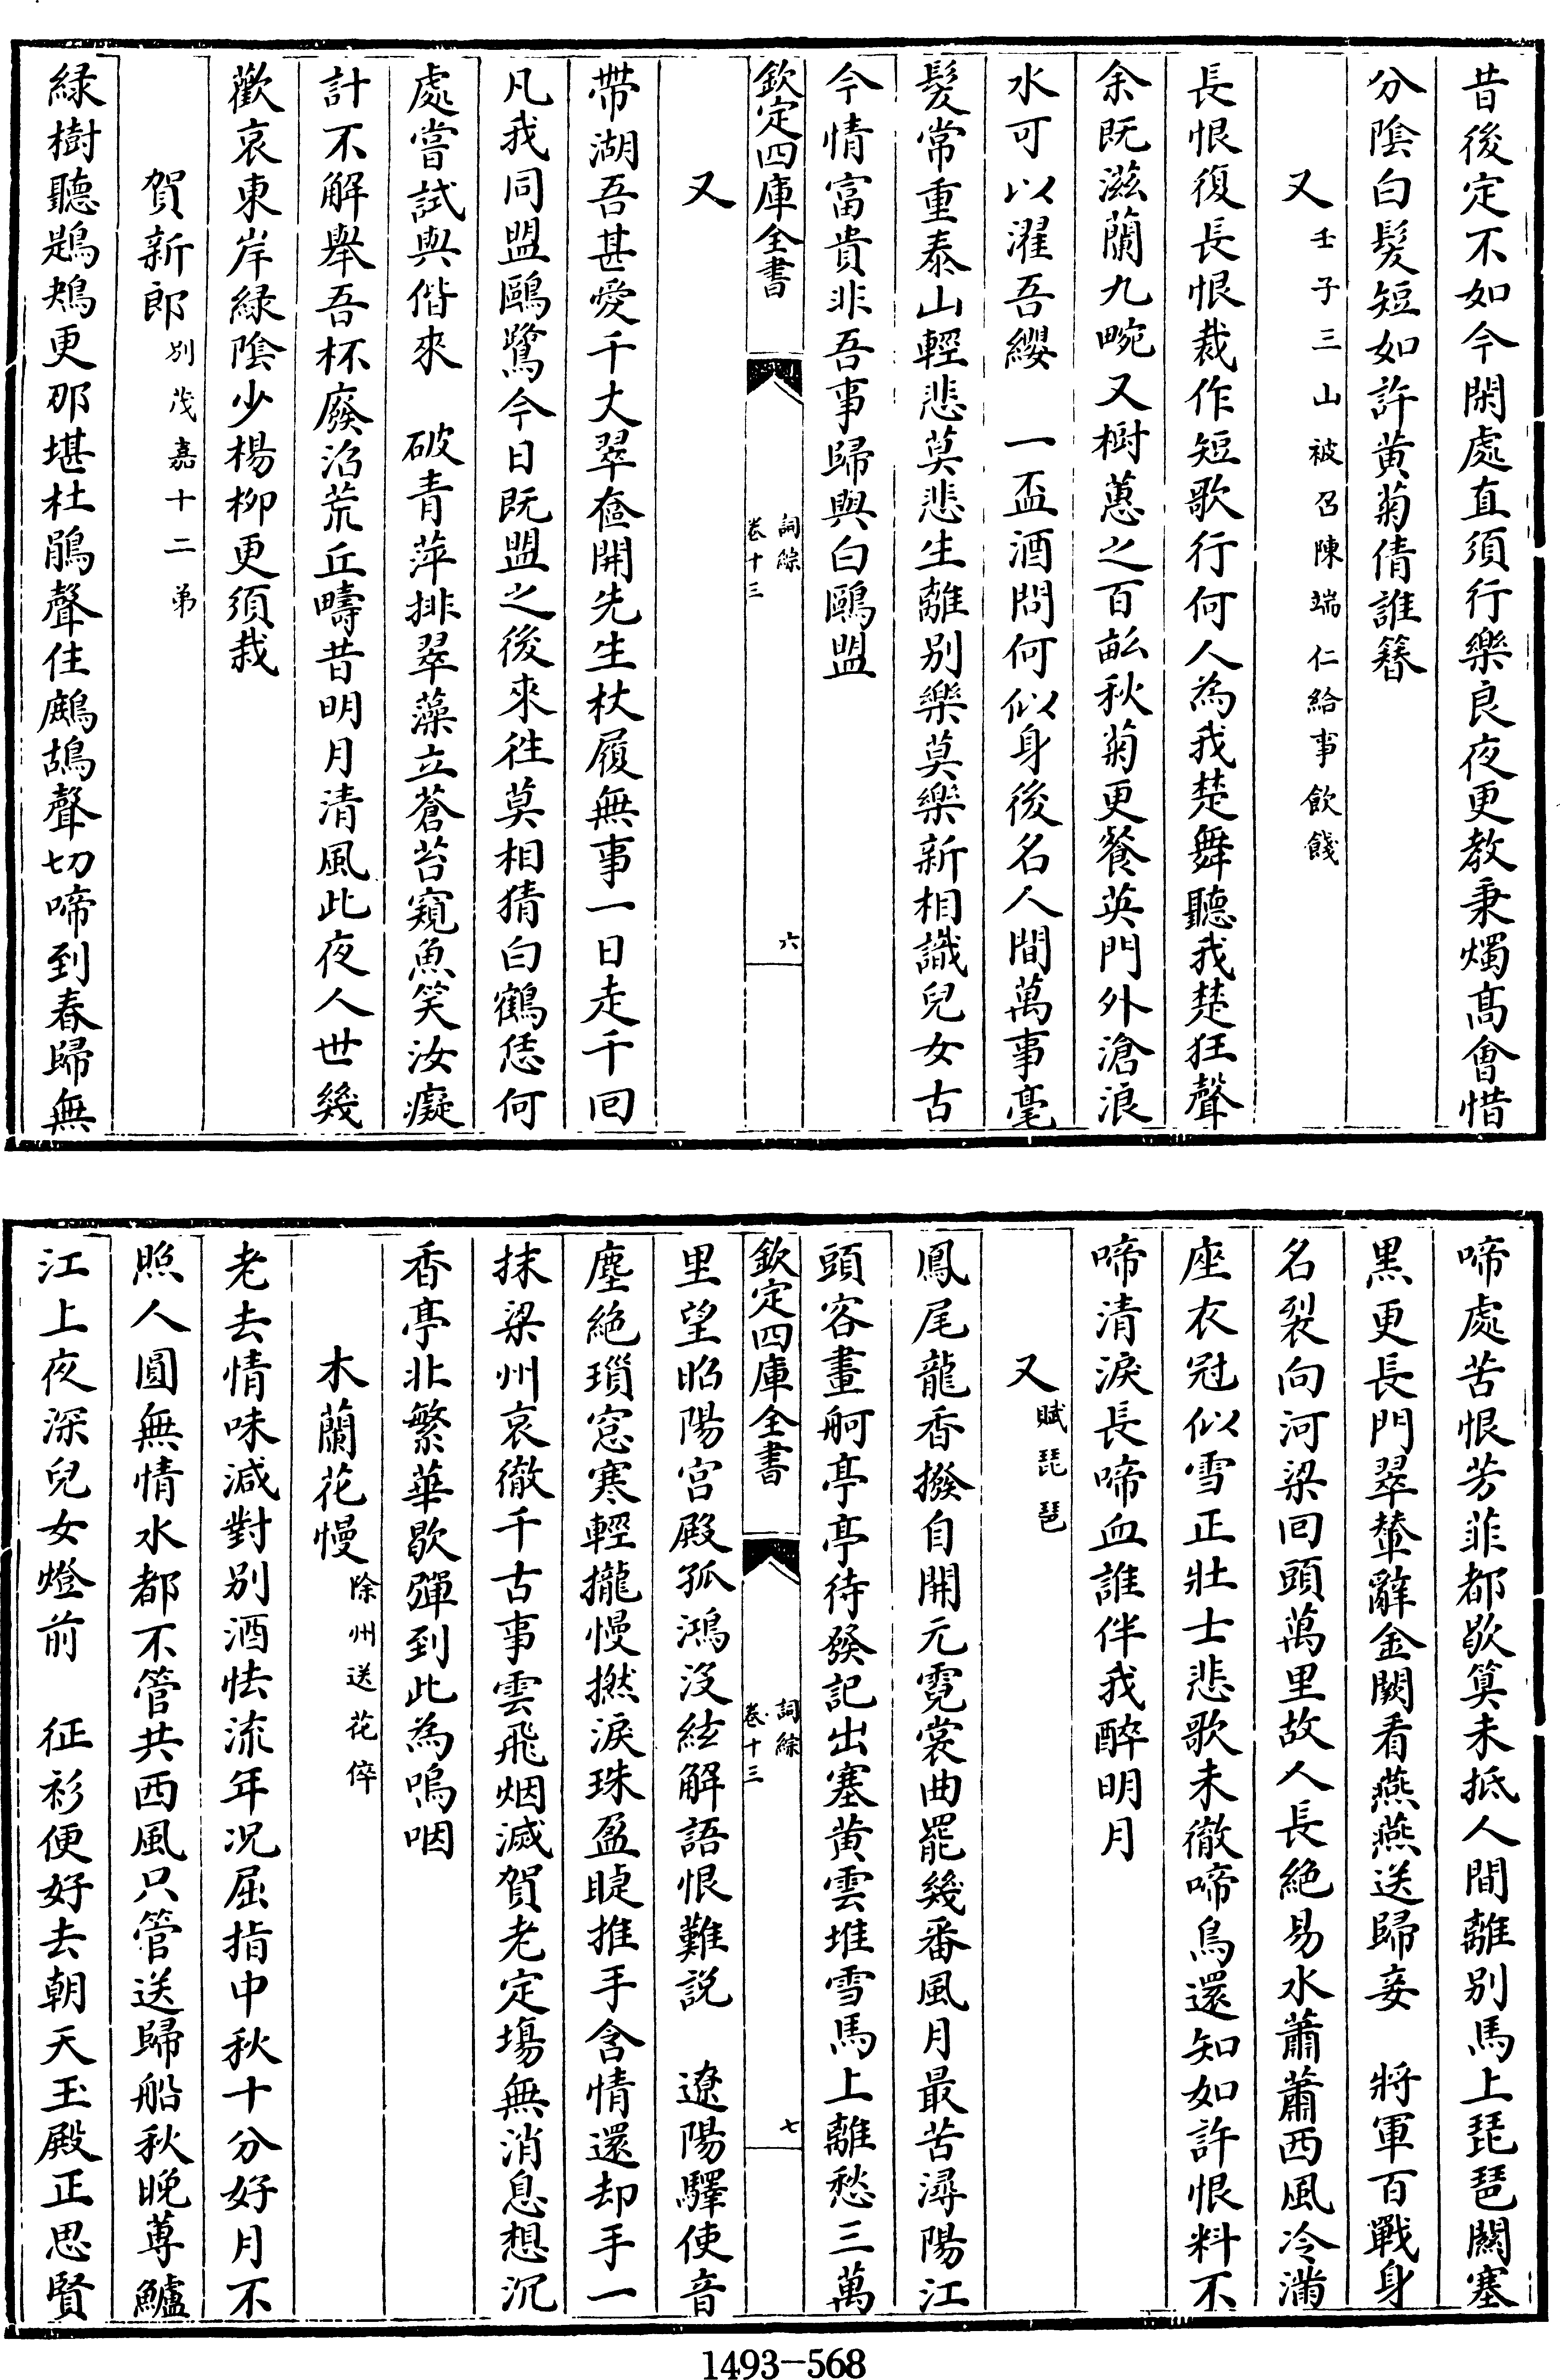 昔後定不如今閑處直須行樂良夜更教秉燭髙㑹惜
分陰白髮短如許黄菊倩誰簮
又壬子三山被召陳端仁給事飲餞
長恨復長恨裁作短歌行何人為我楚舞聽我楚狂聲
余既滋蘭九畹又樹蕙之百畆秋菊更餐英門外滄浪
水可以濯吾纓　一盃酒問何似身後名人間萬事毫
髮常重泰山輕悲莫悲生離别樂莫樂新相識兒女古
今情富貴非吾事歸與白鷗盟
欽定四庫全書
詞綜
卷十三
六
又
帶湖吾甚愛千丈翠奩開先生杖履無事一日走千回
凡我同盟鷗鷺今日既盟之後來徃莫相猜白鶴恁何
處嘗試與偕來　破青萍排翠藻立蒼苔窺魚笑汝癡
計不解舉吾杯廢沼荒丘疇昔明月清風此夜人世幾
歡哀東岸緑陰少楊柳更須栽
賀新郎别茂嘉十二弟
緑樹聽鶗鴂更那堪杜鵑聲住鷓鴣聲切啼到春歸無
啼處苦恨芳菲都歇算未抵人間離别馬上琵琶闗塞
黒更長門翠輦辭金闕看燕燕送歸妾　將軍百戰身
名裂向河梁回頭萬里故人長絶易水蕭蕭西風冷滿
座衣冠似雪正壯士悲歌未徹啼鳥還知如許恨料不
啼清淚長啼血誰伴我醉明月
又賦琵琶
鳳尾龍香撥自開元霓裳曲罷幾番風月最苦潯陽江
頭客畫舸亭亭待發記出塞黄雲堆雪馬上離愁三萬
欽定四庫全書
詞綜
卷十三
七
里望昭陽宫殿孤鴻没絃解語恨難説　遼陽驛使音
塵絶瑣窓寒輕攏慢撚淚珠盈睫推手含情還却手一
抹梁州哀徹千古事雲飛烟滅賀老定塲無消息想沉
香亭北繁華歇彈到此為嗚咽
木蘭花慢除州送花倅
老去情味減對别酒怯流年况屈指中秋十分好月不
照人圓無情水都不管共西風只管送歸船秋晚蓴鱸
江上夜深兒女燈前　征衫便好去朝天玉殿正思賢
1493-568